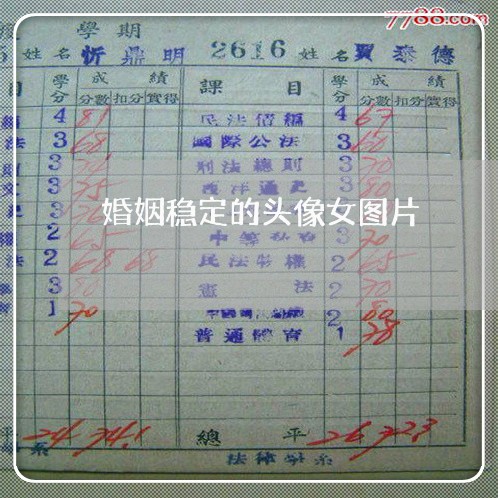 7788.com
學期
5 姓名 忻鼎明 2616 姓名 賈泰德
目 學分 成績 課目 學分 成績
分數 扣分 實得 分數 扣分 實得
4 81 民法債編 4 67
法 3 68 國際公法 3 60
3 刑法總則 3 70
3 75 西洋通史 3 80
婚姻稳定的头像女图片
2 65 3 70
法 2 68 68 民法物權 2 65
3 80 憲法 2 70
1 70 2 80
普通體育 1 78
平 24 74.1 總平 26 72.3
系 法律學系